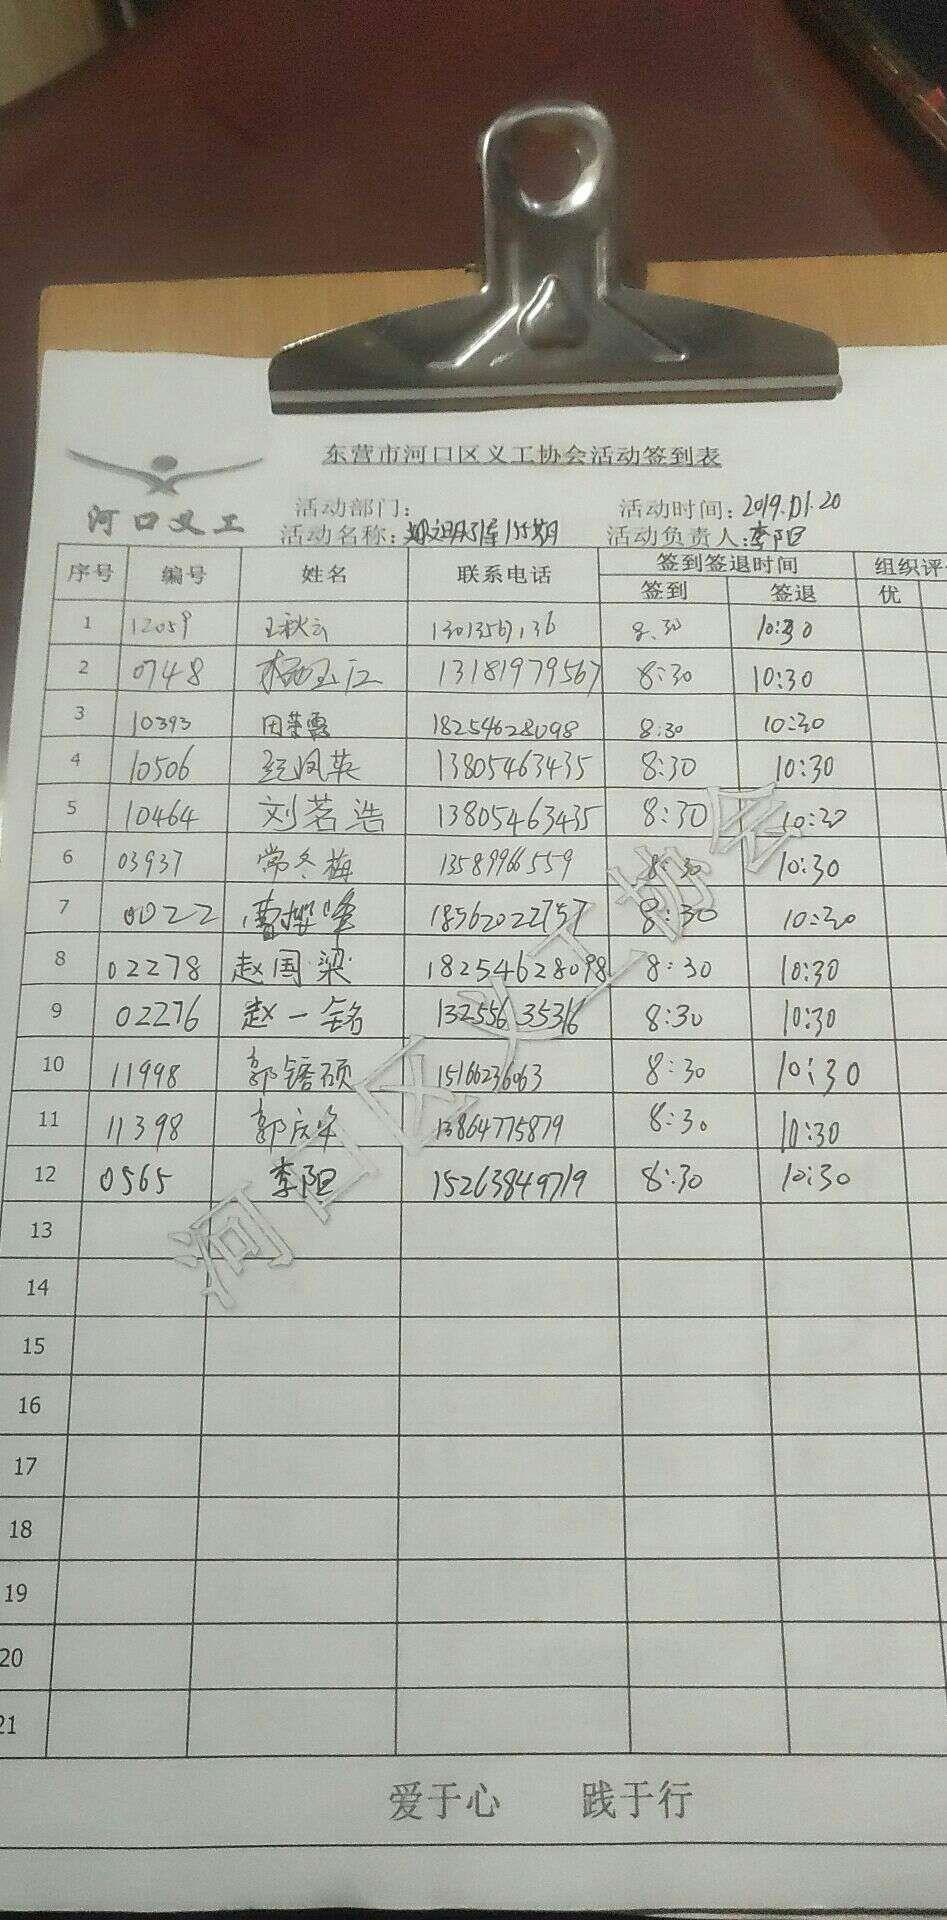 东营市河口区义工协会活动签到表
河口义工
活动部门： 活动时间：2019.01.20
活动名称： 155期 活动负责人：李阳
序号 编号 姓名 联系电话 签到签退时间 组织评
签到 签退 优
1 12059 王秋云 8:30 10:30
2 0748 杨玉江 13181979567 8:30 10:30
3 10393 田荣霞 18254628098 8:30 10:30
4 10506 凤英 13805463435 8:30 10:30
5 10464 刘茗浩 13805463435 8:30 10:30
6 03937 常冬梅 13589966559 8:30 10:30
7 0022 曹 峰 18562022757 8:30 10:30
8 02278 赵国梁 18254628098 8:30 10:30
9 02276 赵一铭 13255635316 8:30 10:30
10 11998 郭锴硕 15166236063 8:30 10:30
11 11398 郭庆华 13864775879 8:30 10:30
12 0565 李阳 15263849719 8:30 10:30
13
14
15
16
17
18
19
20
21
河口区义工协会
爱于心 践于行